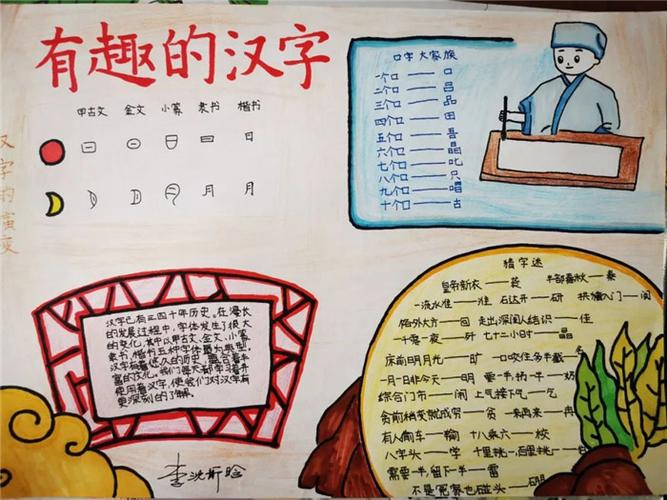 有趣的汉字
甲古文 金文 小篆 隶书 楷书
日 日
月 月
汉字的演变
口字大家族
一个口——口
二个口——吕
三个口——品
四个口——田
五个口——吾
六个口——晶
七个口——叱
八个口——只
九个口——唱
十个口——古
汉字已有三四千年历史,在漫长
的发展过程中,字体发生了很大
的变化,其中以甲古文、金文、小篆
隶书、楷书五种字体最为典型。
汉字有着悠久的历史
富的文化,我们每天都学习着并
使用着汉字,使我们对汉字有
更深刻的了解。
猜字迷
皇帝新衣——袭 半部春秋——秦
一流水准——淮 石达开——研 拱猪入门——阂
格外大方——回 走出深闺人结识——佳
一千零一夜——歼 七十二小时——晶
床前明月光——旷 一口咬住多半截——名
一月一日非今天——明 要一半,扔一半——奶
综合门市——闹 上气接下气——乞
贪前稍失就成穷——贫 一来再来——冉
有人偷车——输 十八乘六——校
八字头——学
需要一半,留下一半——雷
不是冤家也碰头——硕